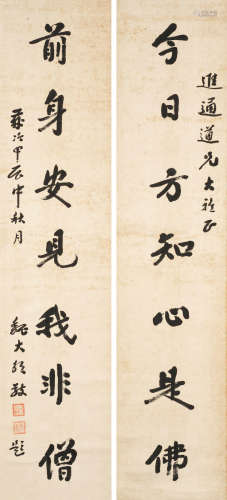 進通道兄大雅正
今日方知心是佛
前身安見我非僧
甲辰中秋月
敬題